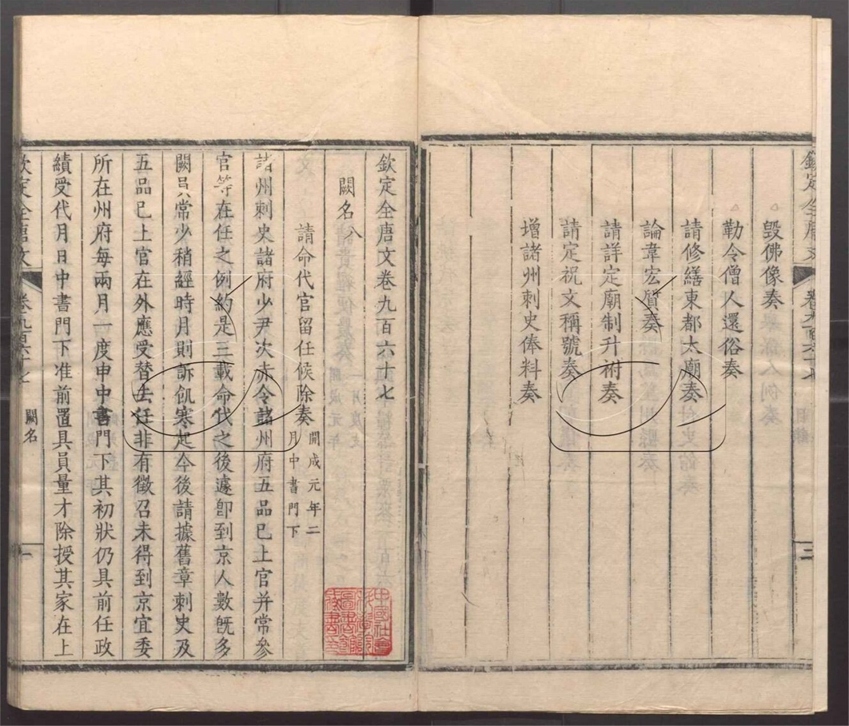 欽定全唐文
卷九百六十七
目錄
三
毀佛像奏
勒令僧人還俗奏
請修繕東都太廟奏
論韋宏質奏
請詳定廟制升祔奏
請定祝文稱號奏
增諸州刺史俸料奏
欽定全唐文卷九百六十七
闕名
請命代官留任候除奏
開成元年二
月中書門下
諸州刺史諸府少尹次赤令諸州府五品已上官并常參
官等在任之例約是三載命代之後遽卽到京人數旣多
闕員常少稍經時月則訴飢寒起今後請據舊章刺史及
五品已上官在外應受替去任非有徵召未得到京宜委
所在州府每兩月一度申中書門下其初狀仍具前任政
績受代月日中書門下准前置具員量才除授其家在上
欽定全唐文
卷九百六十七
闕名
一